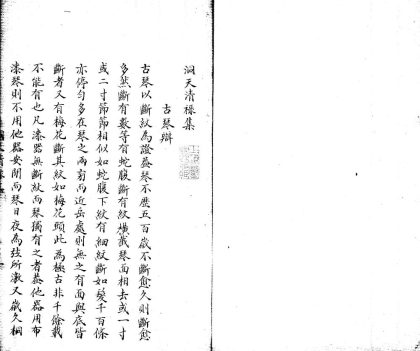 洞天清禄集
古琴辯
古琴以斷紋為證蓋琴不歷五百歲不斷愈久則斷愈
多然斷有數等有蛇腹斷有紋橫截琴面相去或一寸
或二寸節節相似如蛇腹下紋有細紋斷如髮千百條
亦停勻多在琴之兩旁而近岳處則無之有面與底皆
斷者又有梅花斷其紋如梅花頭此為極古非千餘載
不能有也凡漆器無斷紋而琴獨有之者蓋他器用布
漆琴則不用他器安閒而琴日夜為弦所激又歲久桐